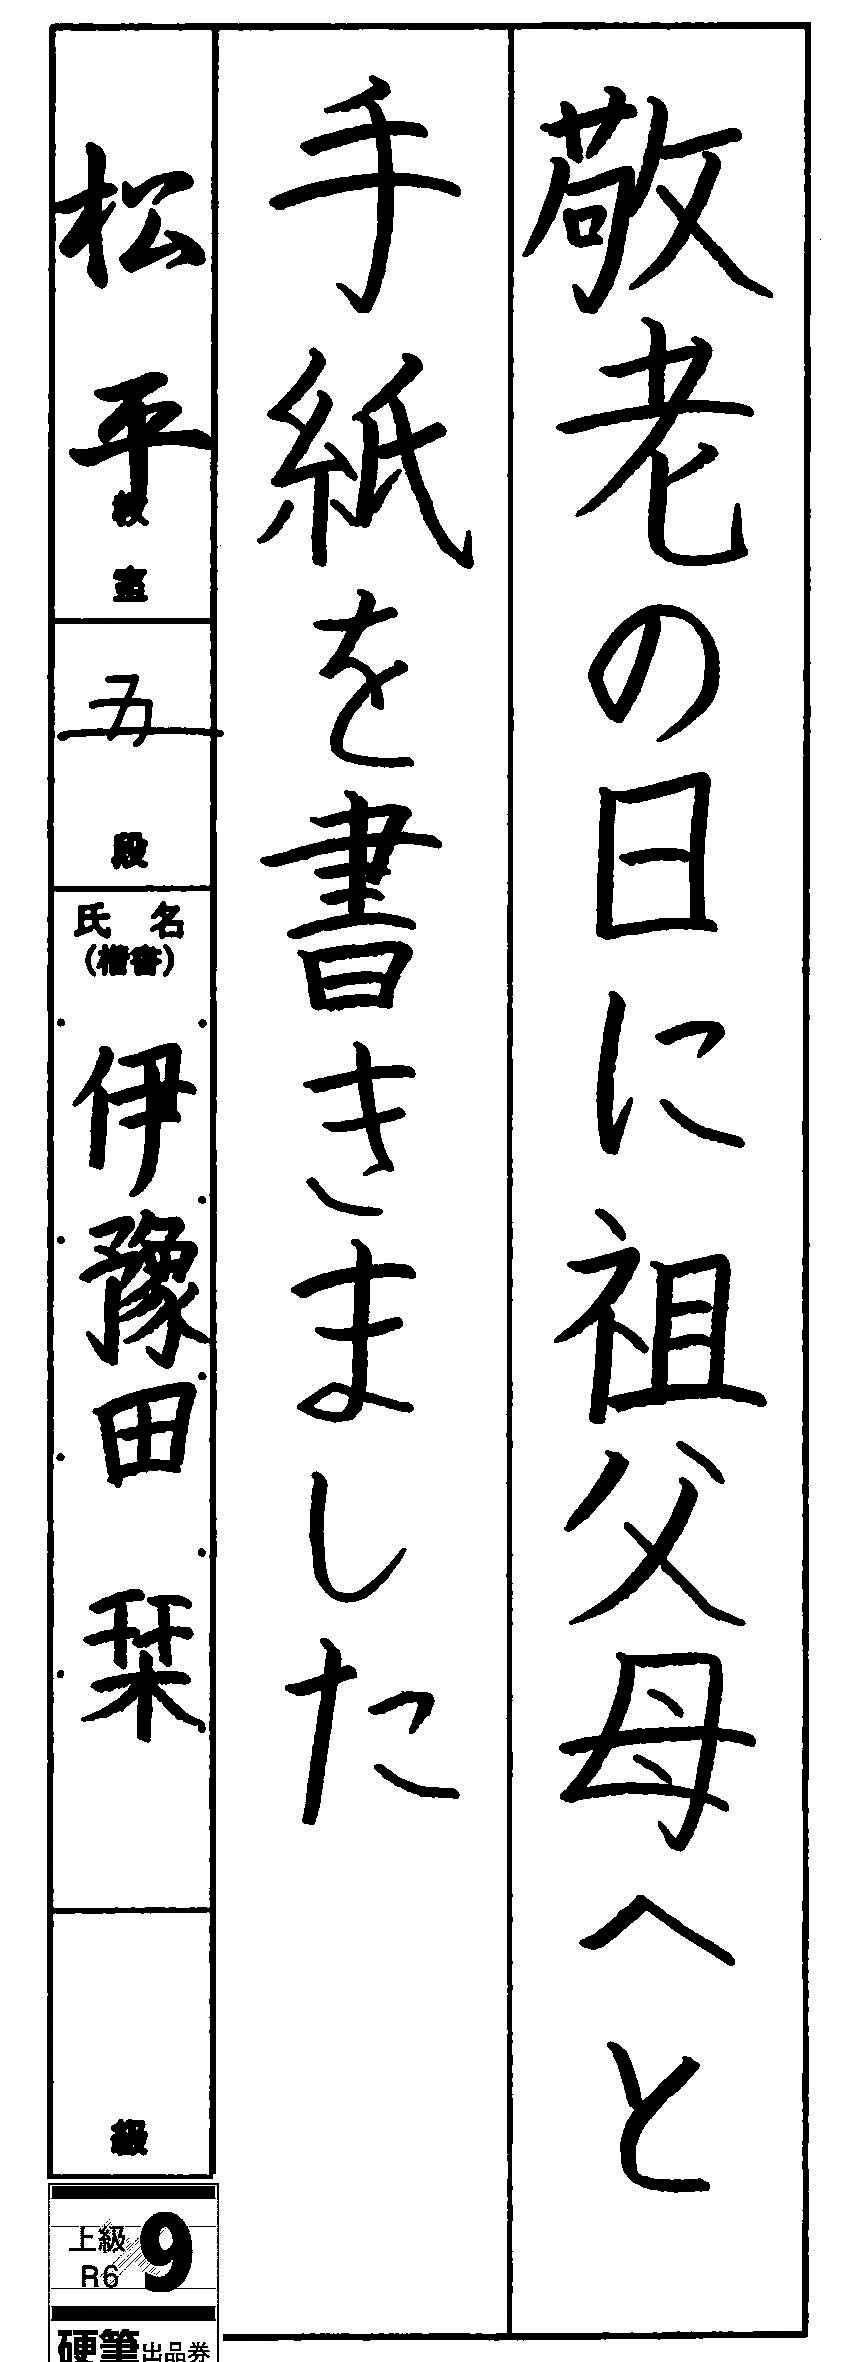 敬老の日に祖父母へと
手紙を書きました
松平教室
五段
氏名
(楷書)
伊豫田栞
級
上級
R6
9
硬筆出品券